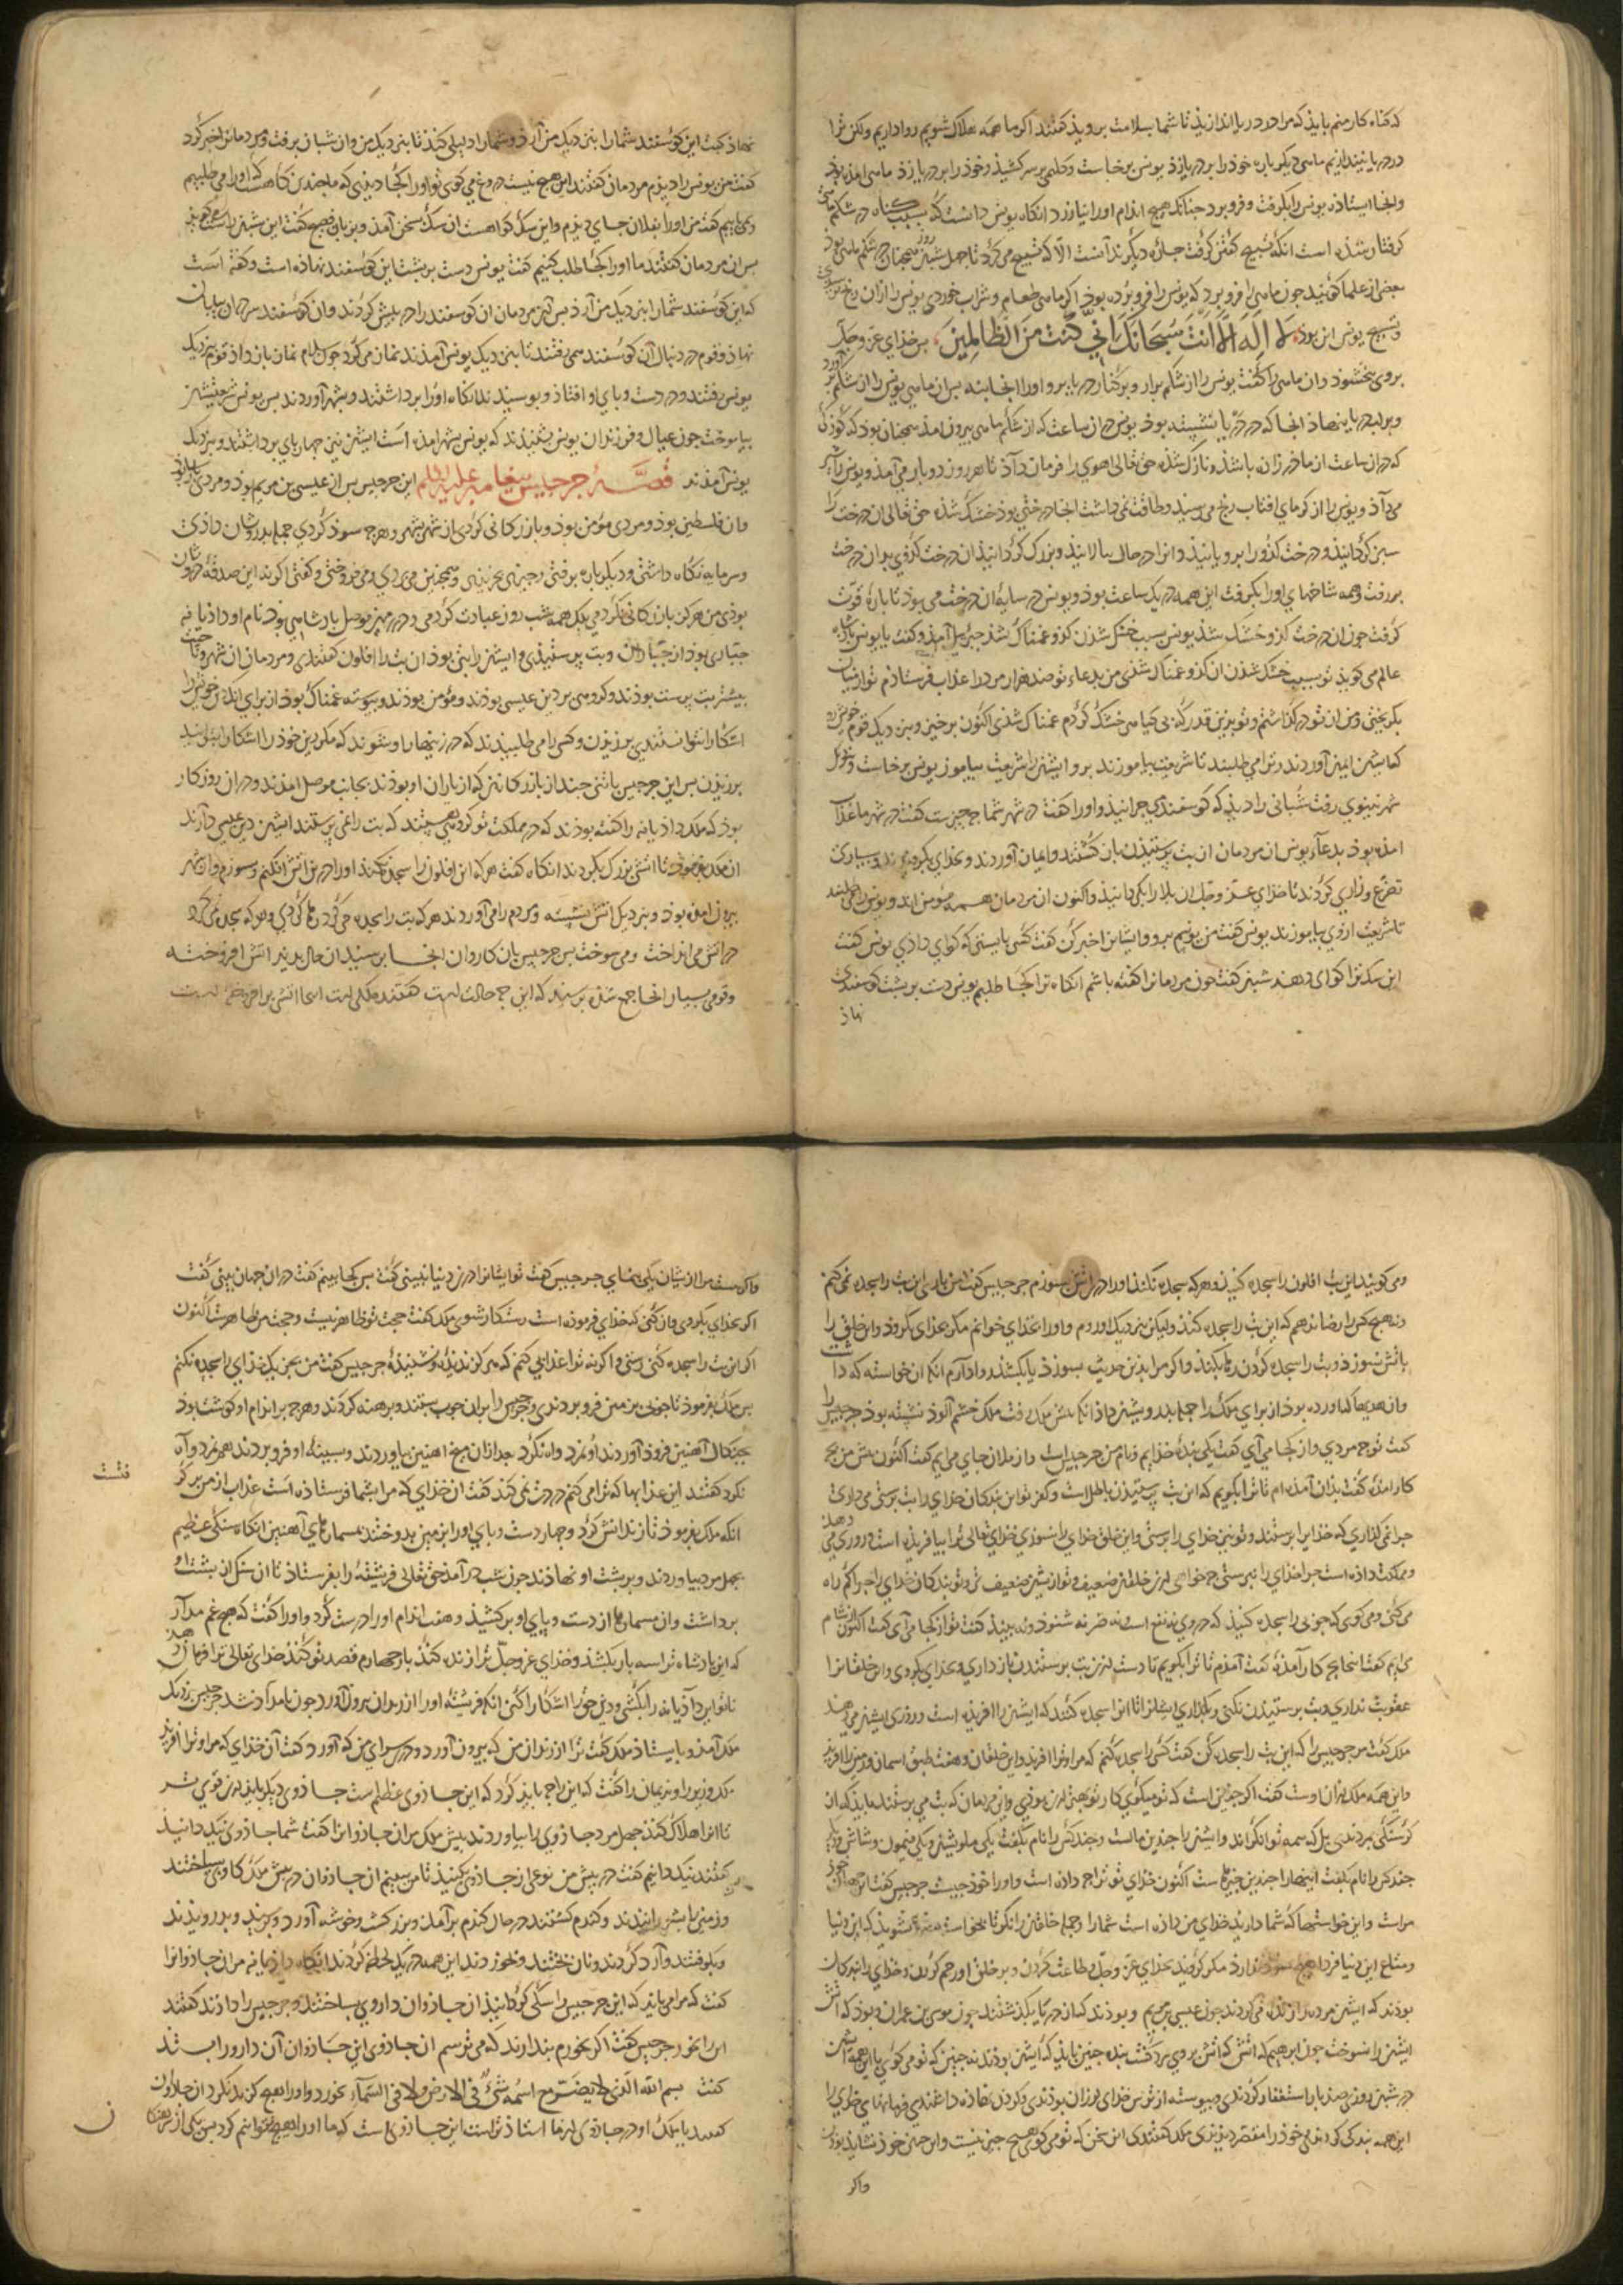 که گناه کار منم باید که مرا در دریا اندازید تا شما بسلامت بروید گفتند اگر ما همه هلاک شویم روا داریم ولکن ترا
در دریا نیندازیم ماهی دیگر باره خود را بر دریا زد یونس برخاست و گلیمی بر سر کشید و خود را بر دریا زد ماهی امد
وانجا ایستاده یونس را بگرفت و فرو برد چنانکه هیچ اندام او را نیازرد انکاه یونس دانست که بسبب گناه در شکم ماهی
گرفتار شده است انکه تسبیح گفتن گرفت تا چهل شبانروز همچنان در شکم ماهی بود
بعضی از علما گویند چون ماهی را فرو برد که یونس را فرو برده بود اگر ماهی طعام و شراب خوردی یونس را ازان رنج
و تسبیح یونس این بود لا اله الا انت سبحانک انی کنت من الظالمین پس خدای عز وجل
بر وی ببخشود وان ماهی را گفت یونس را از شکم برار و بر کنار دریا بر و او را انجا بنه پس ان ماهی یونس را از شکم
و بر لب دریا نهاد انجا که در دریا نشسته بود یونس دران ساعت که از شکم ماهی بیرون امد همچنان بود که کودکی
که دران ساعت از مادر زاده باشد و نازک شده حق تعالی اهوی را فرمان داد تا هر روز دو بار می آمد و یونس را شیر
می داد و یونس را از گرمای افتاب رنج می رسید و طاقت نمی داشت انجا درختی بود خشک شده حق تعالی ان درخت را
سبز گردانید و درخت کدو را برویانید وانرا در حال ببالانید و بزرگ گردانید ان درخت کدو بران درخت
بر رفت و همه شاخهای او را بگرفت این همه در یک ساعت بود و یونس در سایه ان درخت می بود تا باره قوت
گرفت چون ان درخت کدو خشک شد یونس بسبب خشک شدن کدو غمناک شد جبریل آمد و گفت یا یونس
عالم می گوید تو بسبب خشک شدن ان کدو غمناک شدی من بدعاء تو صد هزار مرد را عذاب فرستادم تو از میان
بگریختی و من از تو در گذاشتم و تو بدین قدر که بی گیاهی خشک کردم غمناک شدی اکنون برخیز و بنزدیک قوم
که ایشان ایمن آوردند و ترا می طلبند تا شریعت بیاموزند برو و ایشان را شریعت بیاموز یونس برخاست
شهر نینوی رفت شبانی را دید که گوسفندی چرانید و او را گفت در شهر شما چه چیزست گفت در شهر ما عذاب
امده بود بدعاء یونس ان مردمان از بت پرستیدن باز گشتند و ایمان آوردند و بخدای بگرویدند و بسیاری
تضرع و زاری کردند تا خدای عز وجل ان بلا را بگردانید و اکنون ان مردمان همه مؤمن اند و یونس را می طلبند
تا شریعت از وی بیاموزند یونس گفت من یونسم برو و ایشانرا خبر کن گفت کسی بایستی که گواهی دادی یونس گفت
این سگ ترا گواهی دهد شبان گفت چون مردمانرا گفته باشم انکاه ترا کجا طلبم یونس دست بر پشت گوسفندی
نهاذ
نهاذ گفت این گوسفند شما را بنزدیک من آرد و شما را دلیلی کند تا بنزدیک من وان شبان برفت و مردمانرا خبر کرد
گفت من یونس را دیدم مردمان گفتند این هیچ نیست دروغ می گوی تو او را کجا دیدی که ما چندین گاهست که او را می طلبیم
و نمی یابیم گفت من او را بفلان جای دیدم و این سگ گواهست ان سگ بسخن آمد و بزبان فصیح گفت این شبان راست می گوید
پس ان مردمان گفتند ما او را کجا طلب کنیم گفت یونس دست بر پشت این گوسفند نهاده است و گفته است
که این گوسفند شما را بنزدیک من آرد پس آن مردمان ان گوسفند را در پیش کردند وان گوسفند سر دران بیابان
نهاذ و قوم در دنبال آن گوسفند همی رفتند تا بنزدیک یونس آمدند نماز می کرد چون سلام نماز باز داد قوم نزدیک
یونس رفتند و در دست و پای او افتاد و بوسیدند انکاه او را برداشتند و بشهر آوردند پس یونس شریعت
بیاموخت چون عیال و فرزندان یونس بشنیدند که یونس بشهر امده است ایشان نیز چهارپای برداشتند و بنزدیک
یونس آمدند قصهٔ جرجیس پیغامبر علیه السلام این جرجیس پس از عیسی بن مریم بود و مردی
وان فلسطین بود و مردی مؤمن بود و بازرگانی کردی از شهر بشهر و هر چه سود کردی جمله بدرویشان دادی
و سرمایه نگاه داشتی و دیگر باره برفتی و همچنین می کردی و می فروختی و گفتی اگر نه این صدقه
بودی من هرگز بازرگانی نکردمی بلکه همه شب روز عبادت کردمی و در شهر موصل پادشاهی بود نام او داذیانه
جباری بود از جباران و بت پرستیدی و ایشان را بتی بود ان بت را افلون گفتندی و مردمان ان شهر
بیشتر بت پرست بودند و گروهی بر دین عیسی بودند و مؤمن بودند و پیوسته غمناک بود از برای انکه دین خویش را
اشکارا نتوانستندی بر زیدن و کسی را می طلبیدند که در زینهار او شوند که مکر دین خود را اشکارا بتوانند
بر زیدن پس این جرجیس با تنی چند از بازرگانان که از یاران او بودند بجانب موصل امدند و دران روزگار
بود که ملک داذیانه را گفته بودند که در مملکت تو گروهی هستند که بت را نمی پرستند ایشان دین عیسی دارند
ان ملک بفرمود تا اتشی بزرگ بکردند انکاه گفت هر که این افلون را سجده نکند او را درین اتش افکنم و بسوزم وان شهر
بیرون امده بود و بنزدیک اتش نشسته و مردم را می آوردند هر که بت را سجده می کرد رها کردی و هر که سجده نمی کرد
در اتش می انداخت و می سوخت پس جرجیس بازان کاروان انجا برسید ان حال بدید اتش افروخته
و قومی بسیار انجا جمع شده پرسید که این چه حالت است گفتند ملکی است
ومی گویند این بت افلون را سجده کنید و هر که سجده نکند او را در اتش بسوزم جرجیس گفت من باری این بت را سجده نمی کنم
و نه هیچ کس را رضا ندهم که این بت را سجده کند ولیکن بنزدیک او روم و او را بخدای خوانم مکر بخدای بگرود و این خلق را
باتش نسوزد و بت را سجده کردن رها بکند و اگر مرا بدین حدیث بسوزد یا بکشد روا دارم
وان هدیها که اورده بود از برای ملک را جمله بدرویشان داد ملک خشم آلود نشسته بود جرجیس را
گفت تو چه مردی و از کجا می آی گفت یکی بنده خدایم و نام من جرجیس است و از فلان جای می ایم گفت اکنون پیش من بچه
کار امده گفت بدان آمده ام تا ترا بگویم که این بت پرستیدن باطل است و کفر تو این بندگان خدای را بت پرستی می داری
چرا نمی گذاری که خدایرا پرستند و تو نیز خدای را پرستی و این خلق خدای را نسوزی خدای تعالی ترا بیافریده است و روزی می دهد
و مملکت داده است چرا خدای را نپرستی چه خواهی ازین خلقان ضعیف و تو ازیشان ضعیف تری و تو بندگان خدای را چرا گم راه
می کنی و می گوی که چوبی را سجده کنید که در وی نه نفع است و نه ضر نه شنود و نه بیند گفت تو از کجا می آی گفت اکنون از شام
می ایم گفت اینجا بچه کار آمده گفت آمدم تا ترا بگویم تا دست ازین بت پرستیدن باز داری و بخدای بگروی و این خلقانرا
عقوبت نداری و بت پرستیدن نکنی و بگذاری ایشانرا تا انرا سجده کنند که ایشان را افریده است و روزی ایشان می دهد
ملک گفت مر جرجیس را که این بت را سجده کن گفت کسی را سجده کنم که مرا و ترا افرید و این خلقان و هفت طبق اسمان و زمین را افرید
و این همه ملک ازان اوست گفت اگر چنین است که تو میگویی کار تو بهتر ازین بودی و این مردمان که بت می پرستند باید که از
گرسنگی بمردندی بل که همه توانگراند و ایشان را چندین مالست و چند کس را نام بگفت
چند کس را نام بگفت اینها را چندین چیزهاست اکنون خدای تو ترا چه داده است و او را خود چیست جرجیس گفت
مراست و این خواستها که شما دارید خدای من داده است شما را و جمله خلقان را نگر تا بخواسته غره مشوید که این دنیا
و متاع این دنیا فردا هیچ سود ندارد مکر گروید بخدای عز وجل و طاعت کردن و بر خلق او رحم کردن و خدای را بندگان
بودند که ایشان مرده را زنده می کردند چون عیسی بن مریم و بودند کسان در دریا بگذشتند چون موسی بن عمران و بود که اتش
ایشان را نسوخت چون ابرهیم که اتش بروی سرد گشت بنده چنین باید که ایشان بودند نه چنین که تو می گوی با این همه ایشان
در شبان روزی صد بار استغفار کردندی و پیوسته از ترس خدای لرزان بودندی و گردن نهاده داشتندی فرمانهای خدای را
این همه بندگی کردند و خود را مقصر دیدندی ملک گفت این سخن که تو می گوی هیچ چیز نیست و این چنین خود نشاید بودن
واکر
واکر هست مرا از ایشان یکی بنمای جرجیس گفت تو ایشانرا درین دنیا نبینی گفت پس کجا بینم گفت دران جهان بینی گفت
اکر بخدای بگروی وان کنی که خدای فرموده است رستگار شوی ملک گفت حجت تو ظاهر نیست و حجت من ظاهر است اکنون
اگر این بت را سجده کنی رستی و اگر نه ترا عذابی کنم که هرگز ندیده و نشنیده جرجیس گفت من بجز یک خدای را سجده نکنم
پس ملک بفرمود تا چوبی بزمین فرو بردند و جرجیس را بران چوب بستند و برهنه کردند و هر چه بر اندام او گوشت بود
بچنگال آهنین فرود آوردند او نمرد و اه نکرد بعد ازان میخ اهنین بیاوردند و بسینه او فرو بردند هم نمرد و آه
نکرد گفتند این عذابها که ترا می کنم درد نمی کند گفت ان خدای که مرا بشما فرستاده است عذاب از من بر گرفت
انکه ملک بفرمود تا زندانش کرد و چهار دست و پای او را بزمین بدوختند بمسمارهای آهنین انکاه سنگی عظیم
بچهل مرد بیاوردند و بر پشت او نهادند چون شب در آمد حق تعالی فریشته را بفرستاد تا ان سنگ از پشت او
برداشت وان مسمارها از دست و پای او بر کشید و هفت اندام او را درست کرد و او را گفت که هیچ غم مدار
که این پادشاه ترا سه بار بکشد و خدای عز وجل ترا زنده کند بار چهارم قصد تو کند خدای تعالی ترا فرمان دهد
تا تو این داذیانه را بکشی و دین خود را اشکارا کنی انکه فریشته او را از زندان بیرون آورد چون بامداد شد جرجیس نزدیک
ملک آمد و بایستاد ملک گفت ترا از زندان من که بیرون آورد و در سرای من که آورد گفت آن خدای که مرا و ترا افرید
ملک وزیر و ندیمان را گفت که این را چه باید کرد که این جادوی عظیم است جادوی دیگر باید ازین قوی تر
تا انرا هلاک کند چهل مرد جادوی را بیاوردند پیش ملک مران جادوانرا گفت شما جادوی نیک دانید
گفتند نیک دانیم گفت در پیش من نوعی از جادوی بکنید تا من ببینم ان جادوان در پیش ملک گاوی ساختند
و زمین بشورانیدند و گندم کشتند در حال گندم بر آمد و بزرگ گشت و خوشه آورد و برسید و بدرویدند
و بکوفتند و آرد کردند و نان پختند و بخوردند این همه در یک لحظه کردند انکاه داذیانه مران جادوانرا
گفت که مرا می باید که این جرجیس را سگی گردانید ان جادوان داروی بساختند و جرجیس را دادند گفتند
این را بخور جرجیس گفت اگر نخورم پندارند که می ترسم از جادوی این جادوان آن دارو را بستد
گفت بسم الله الذی لا یضر مع اسمه شئ فی الارض ولا فی السماء بخورد و او را هیچ گزند نکرد ان جادوان
گفتند یا ملک او در جادوی از ما استاد تراست این جادوی است که ما او را هیچ نتوانیم کرد پس یکی از